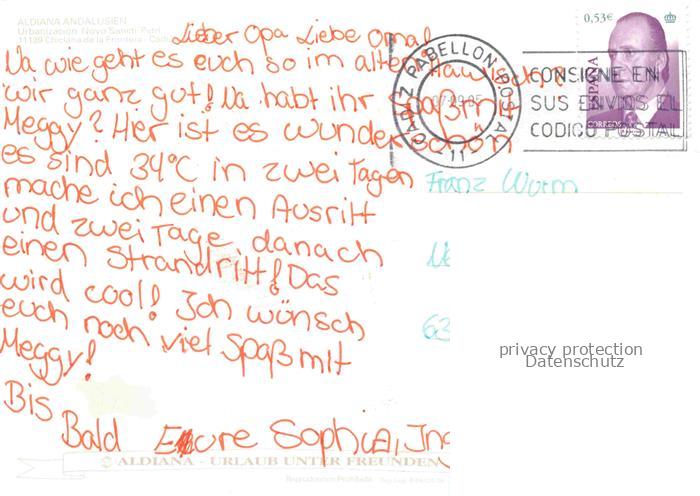 ALDIANA ANDALUSIEN
Urbanización Novo Sancti Petri
11139 Chiclana de la Frontera
Lieber Opa Liebe Oma!
Na wie geht es euch so im alten
wir ganz gut! Na habt ihr Spaß mit
Meggy? Hier ist es wunderschön
es sind 34°C in zwei Tagen
mache ich einen Ausritt
und zwei Tage danach
einen Strandritt! Das
wird cool! Ich wünsch
euch noch viel Spaß mit
Meggy!
Bis
Bald Eure Sophia,
ALDIANA - URLAUB UNTER FREUNDEN
0,53€
ESPAÑA
CORREOS
CADIZ PABELLON POSTAL
11
CONSIGNE EN
SUS ENVIOS EL
CODIGO POSTAL
Franz Wurm
63
privacy protection
Datenschutz